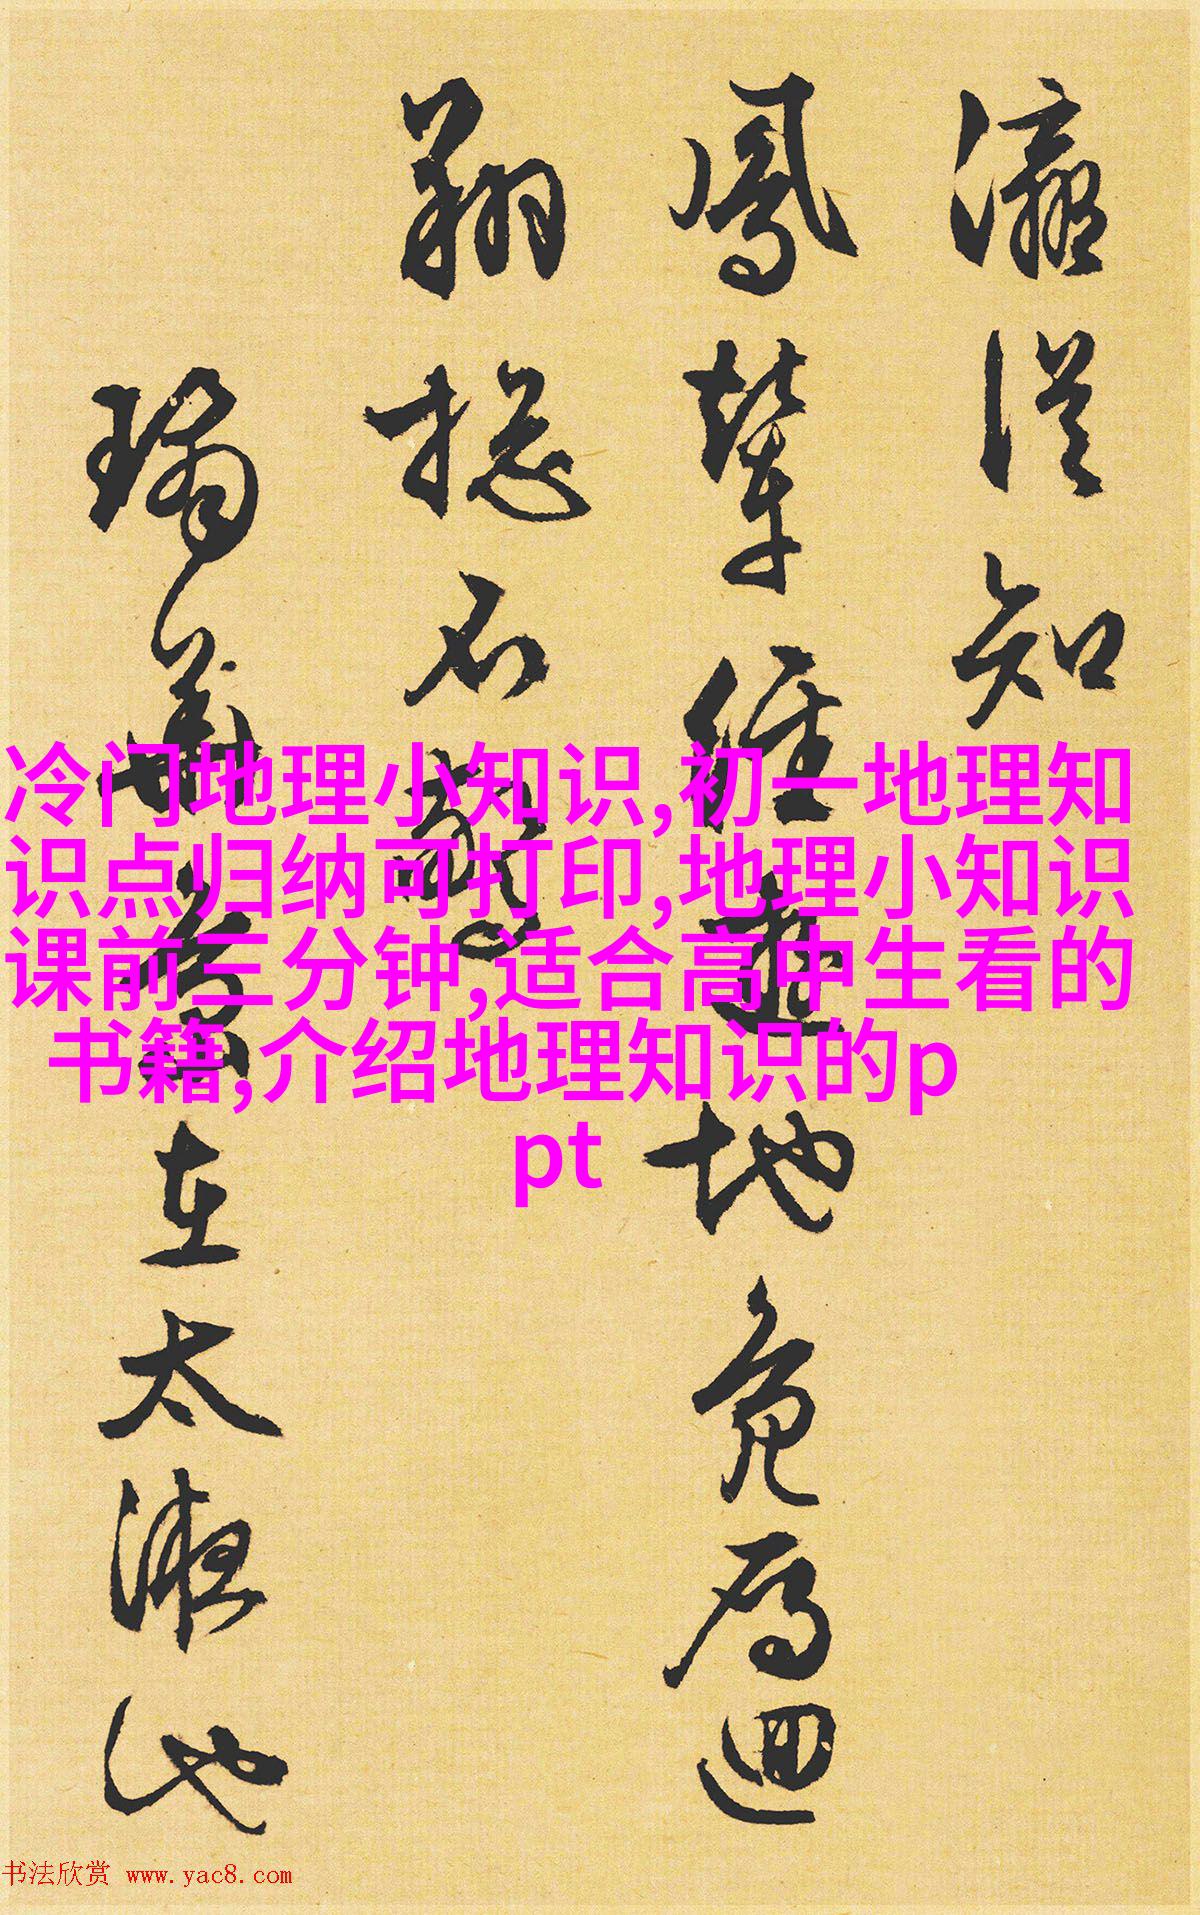 瀛從知
鳳輦經遊地免屬迴
翔抱石
瑤華
在太液池
冷门地理小知识,初一地理知
识点归纳可打印,地理小知识
课前三分钟,适合高中生看的
书籍,介绍地理知识的p
pt
书法欣赏 www.yac8.com